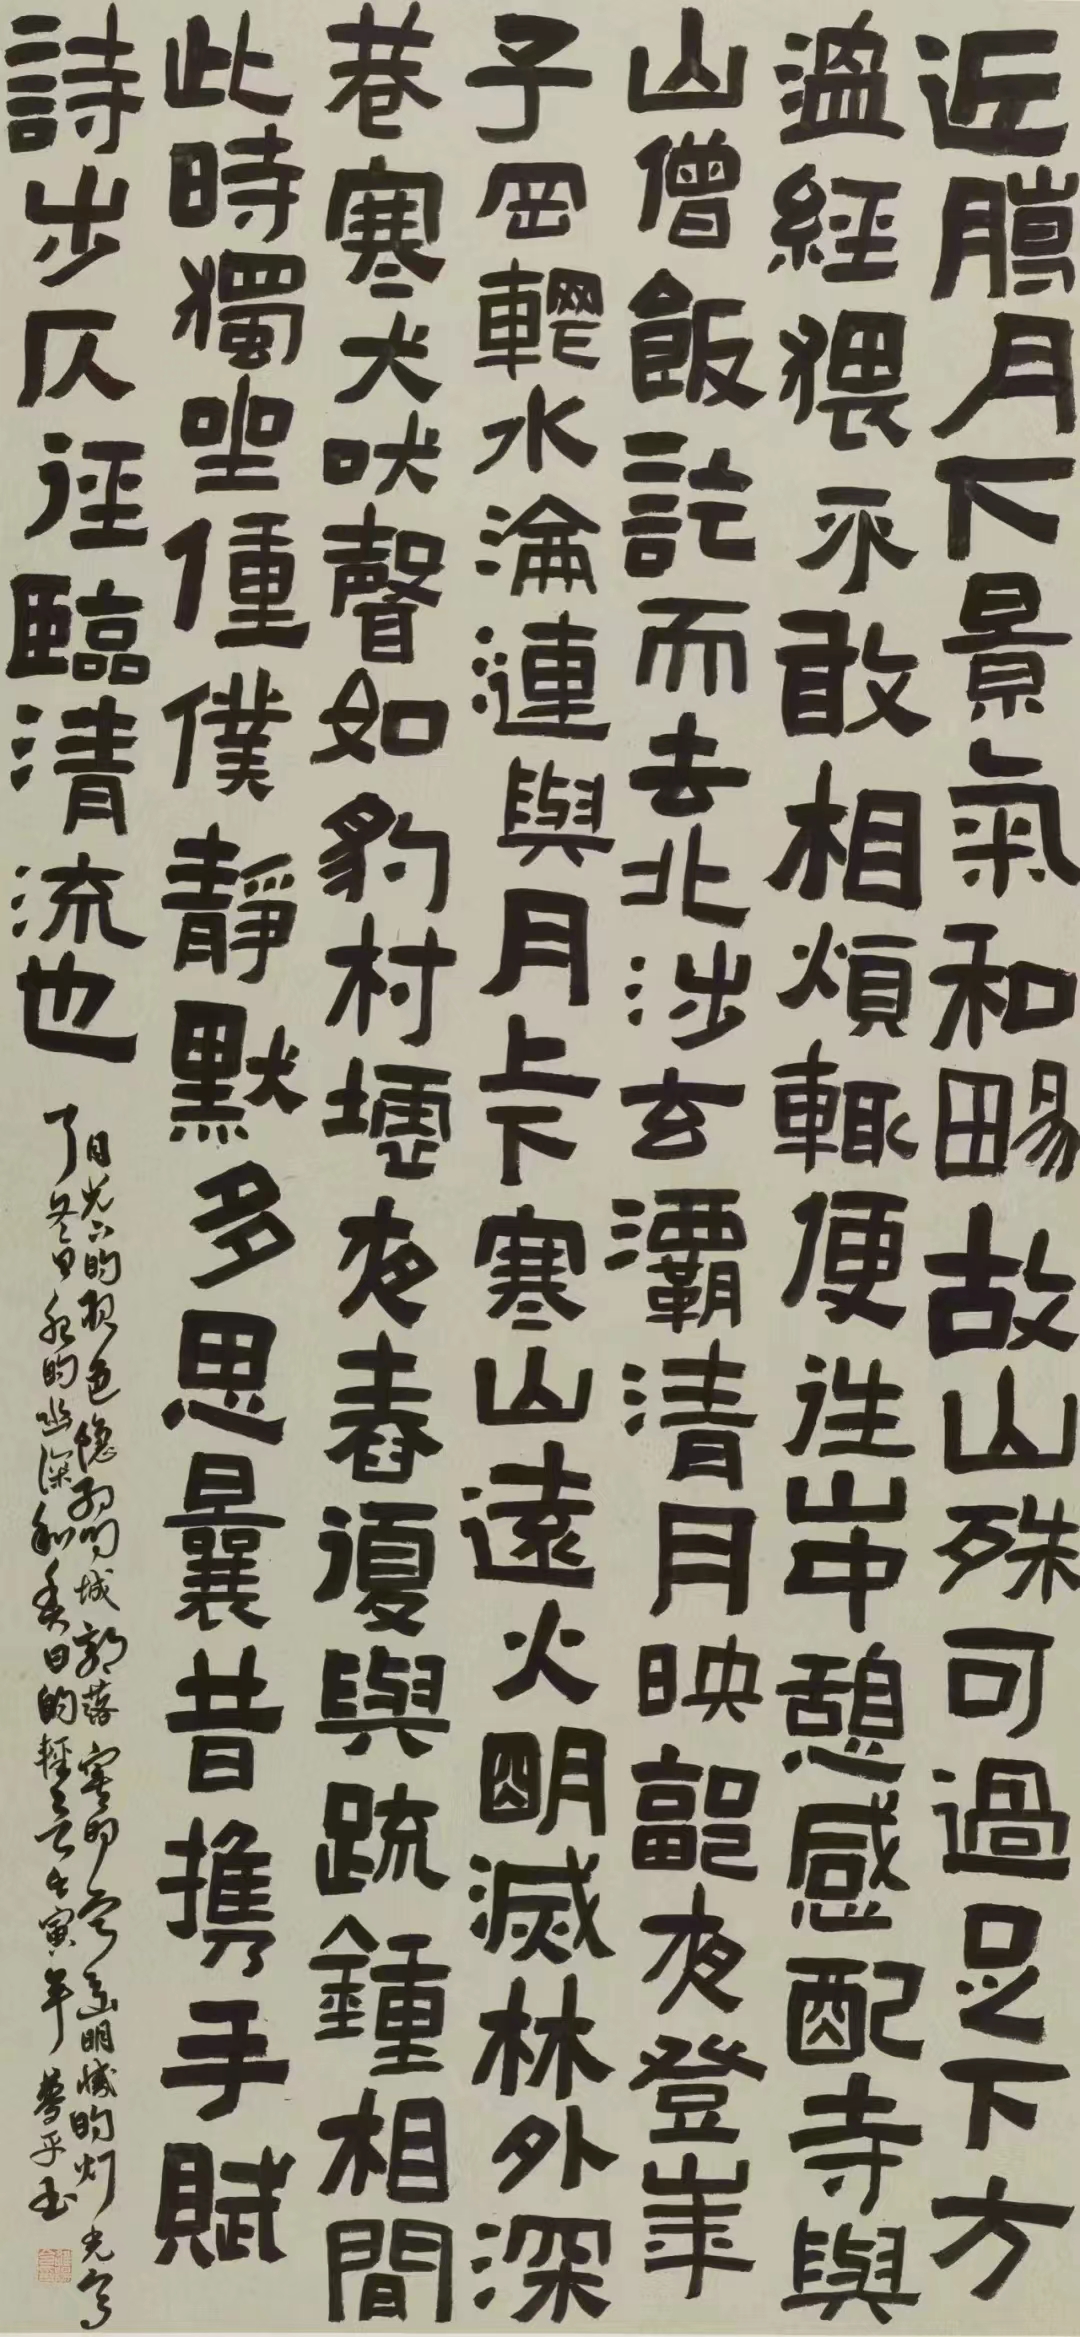 近臘月下景氣和暢故山殊可過足下方
溫經猥不敢相煩輒便往山中憩感配寺與
山僧飯訖而去北涉玄灞清月映郭夜登華
子岡輞水淪漣與月上下寒山遠火明滅林外深
巷寒犬吠聲如豹村墟夜舂復與疏鐘相間
此時獨坐僮僕靜默多思曩昔攜手賦
詩步仄徑臨清流也
月光下的夜色城郭落寞的明滅的灯光寫
了冬日夜的幽深和春日的輕壬寅年